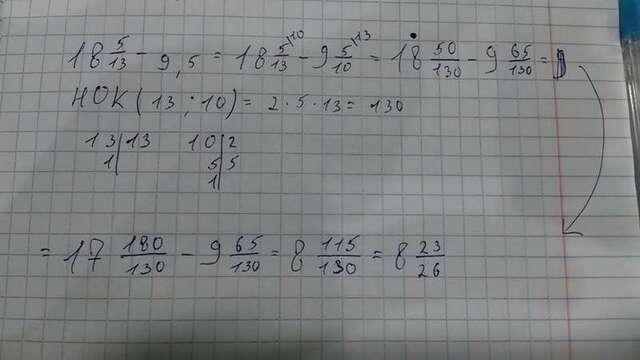 18 5/13 - 9,5 = 18 5/13 \10 - 9 5/10 \13 = 18 50/130 - 9 65/130 =
НОК (13 ; 10) = 2 · 5 · 13 = 130
13|13 10|2
1| 5|5
1|
= 17 180/130 - 9 65/130 = 8 115/130 = 8 23/26